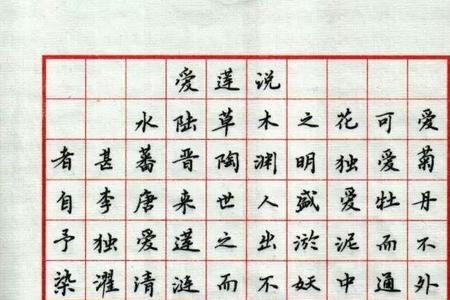 爱莲说
水陆草木之花可爱
者甚蕃晋陶渊明独爱菊
自李唐来世人盛爱牡丹
予独爱莲之出淤泥而不
染濯清涟而不妖中通外